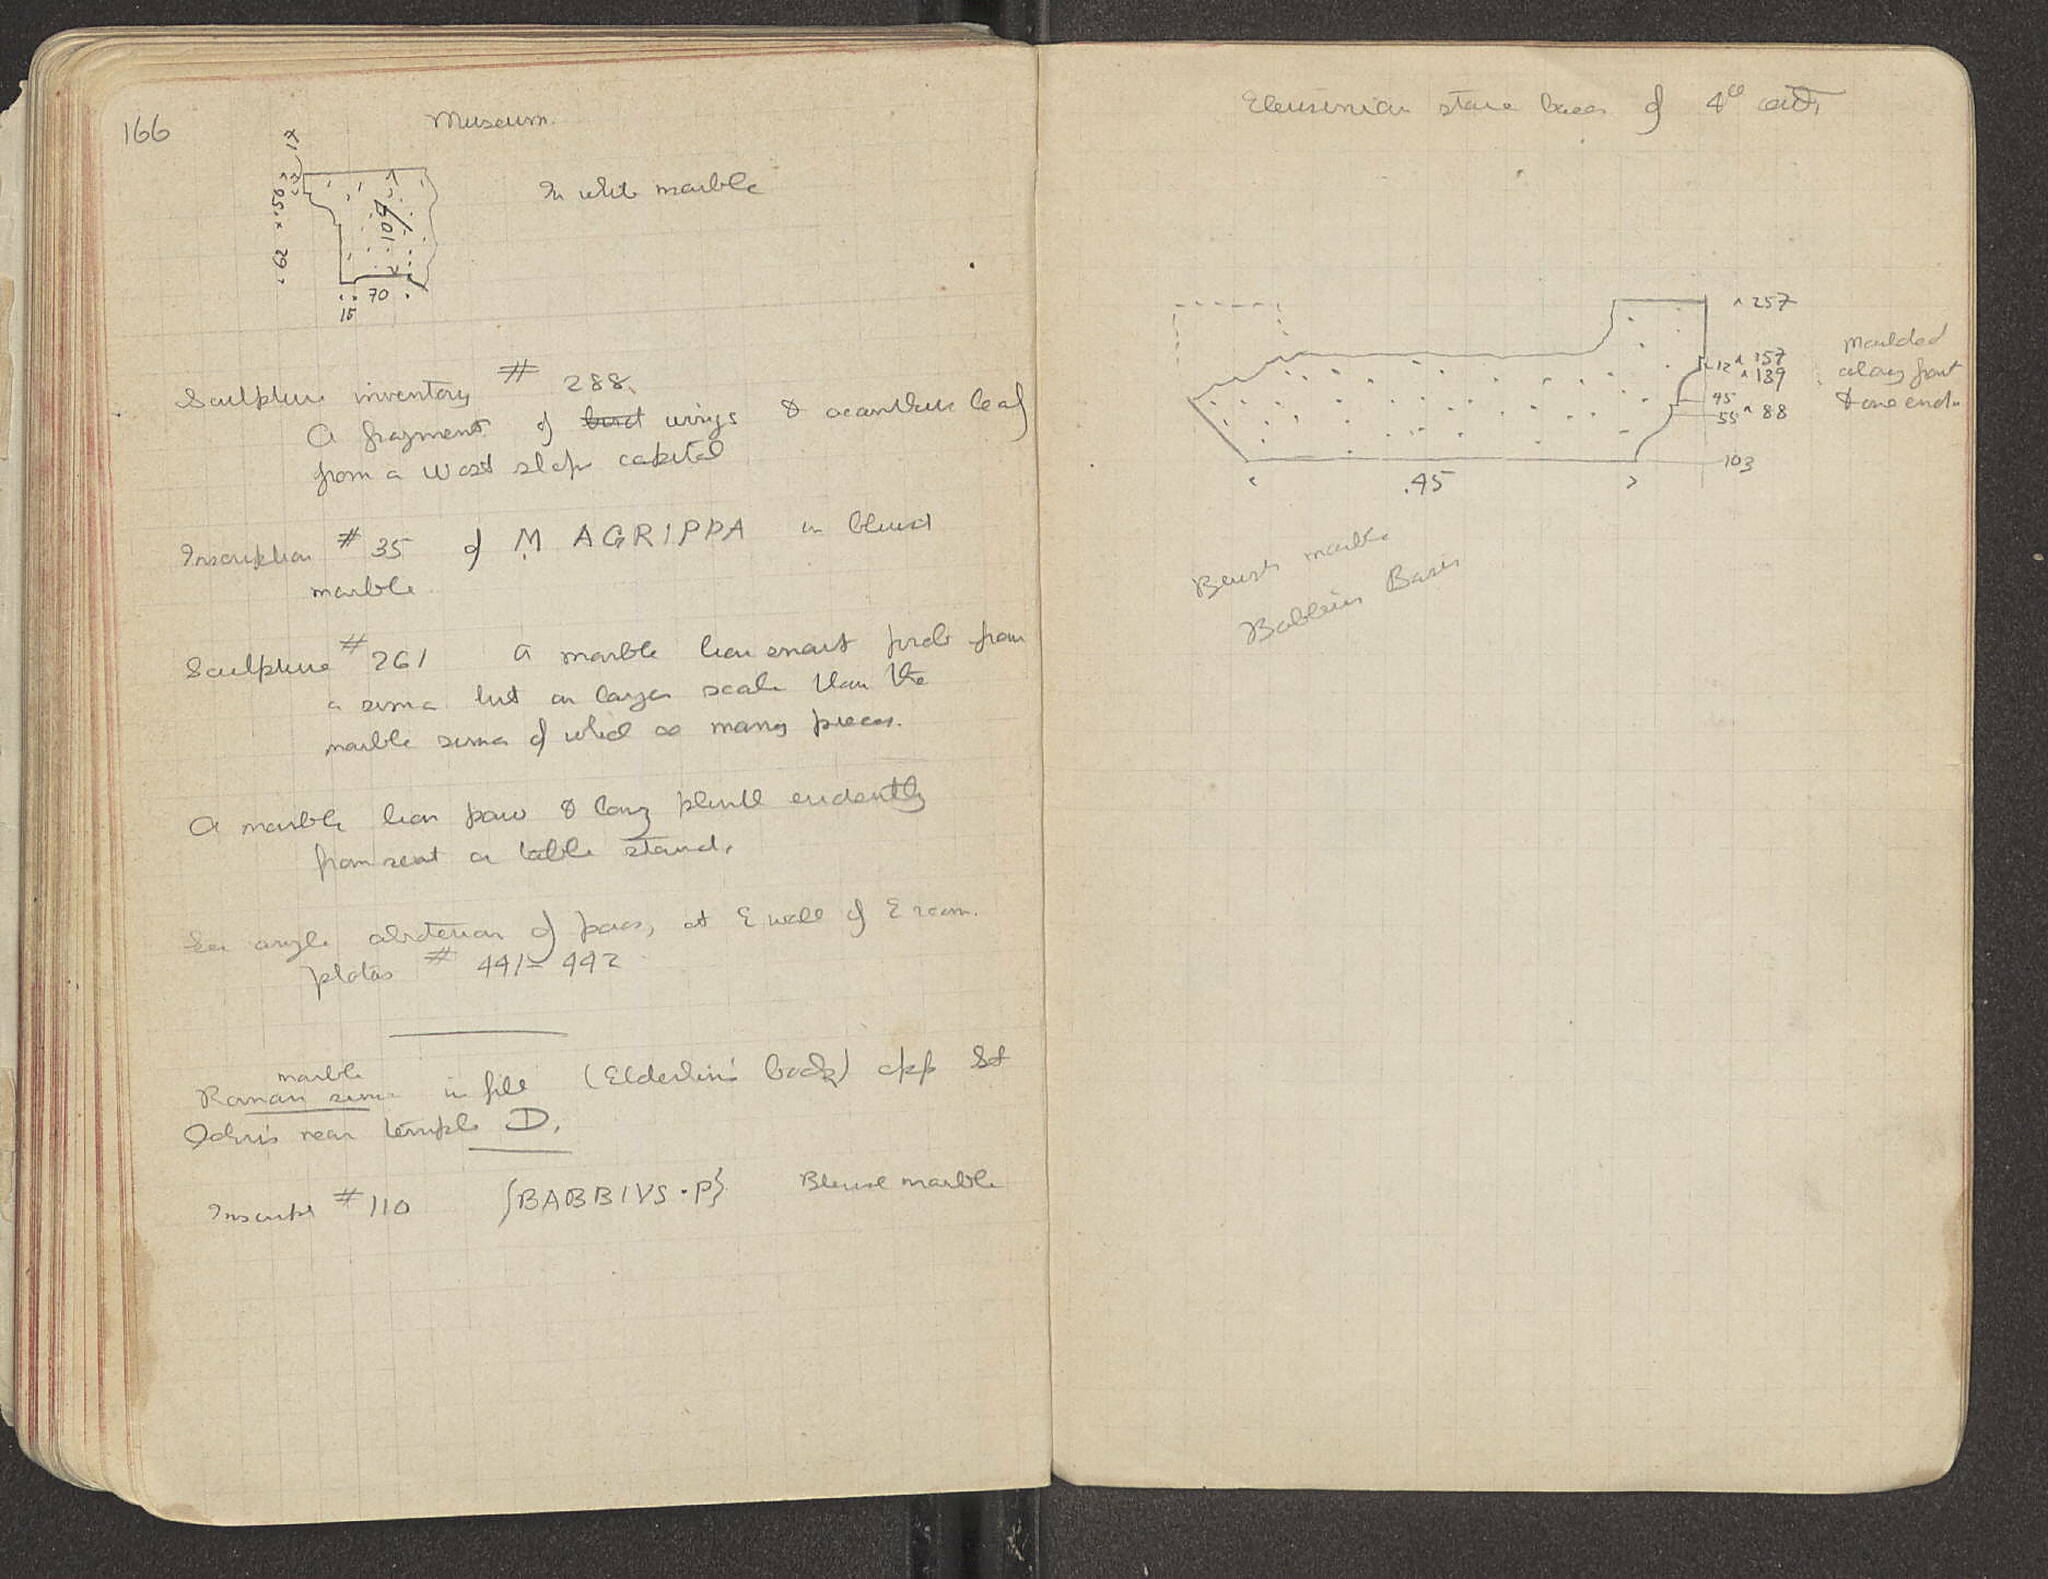 166
Museum.
In white marble
15
70
Sculpture inventory # 288.
A fragment of bird wings & acanthus leaf
from a West slope capital
Inscription # 35 of M AGRIPPA in blueish
marble
Sculpture # 261 A marble lion snout prob from
a sima but on larger scale than the
marble sima of which so many pieces.
A marble lion paw & long plinth evidently
from seat or table stand.
See angle of poros, at E wall of E room.
photos # 441-442
marble
Roman sima in fill (Elderkin's book) opp St
John's near temple D.
Inscript # 110 {BABBIVS·P} Blueish marble
Eleusinian stone bases of 4th cent.
257
12 157
139
45
55 88
103
Moulded
along front
& one end.
.45
Blueish marble
Babbius Basis